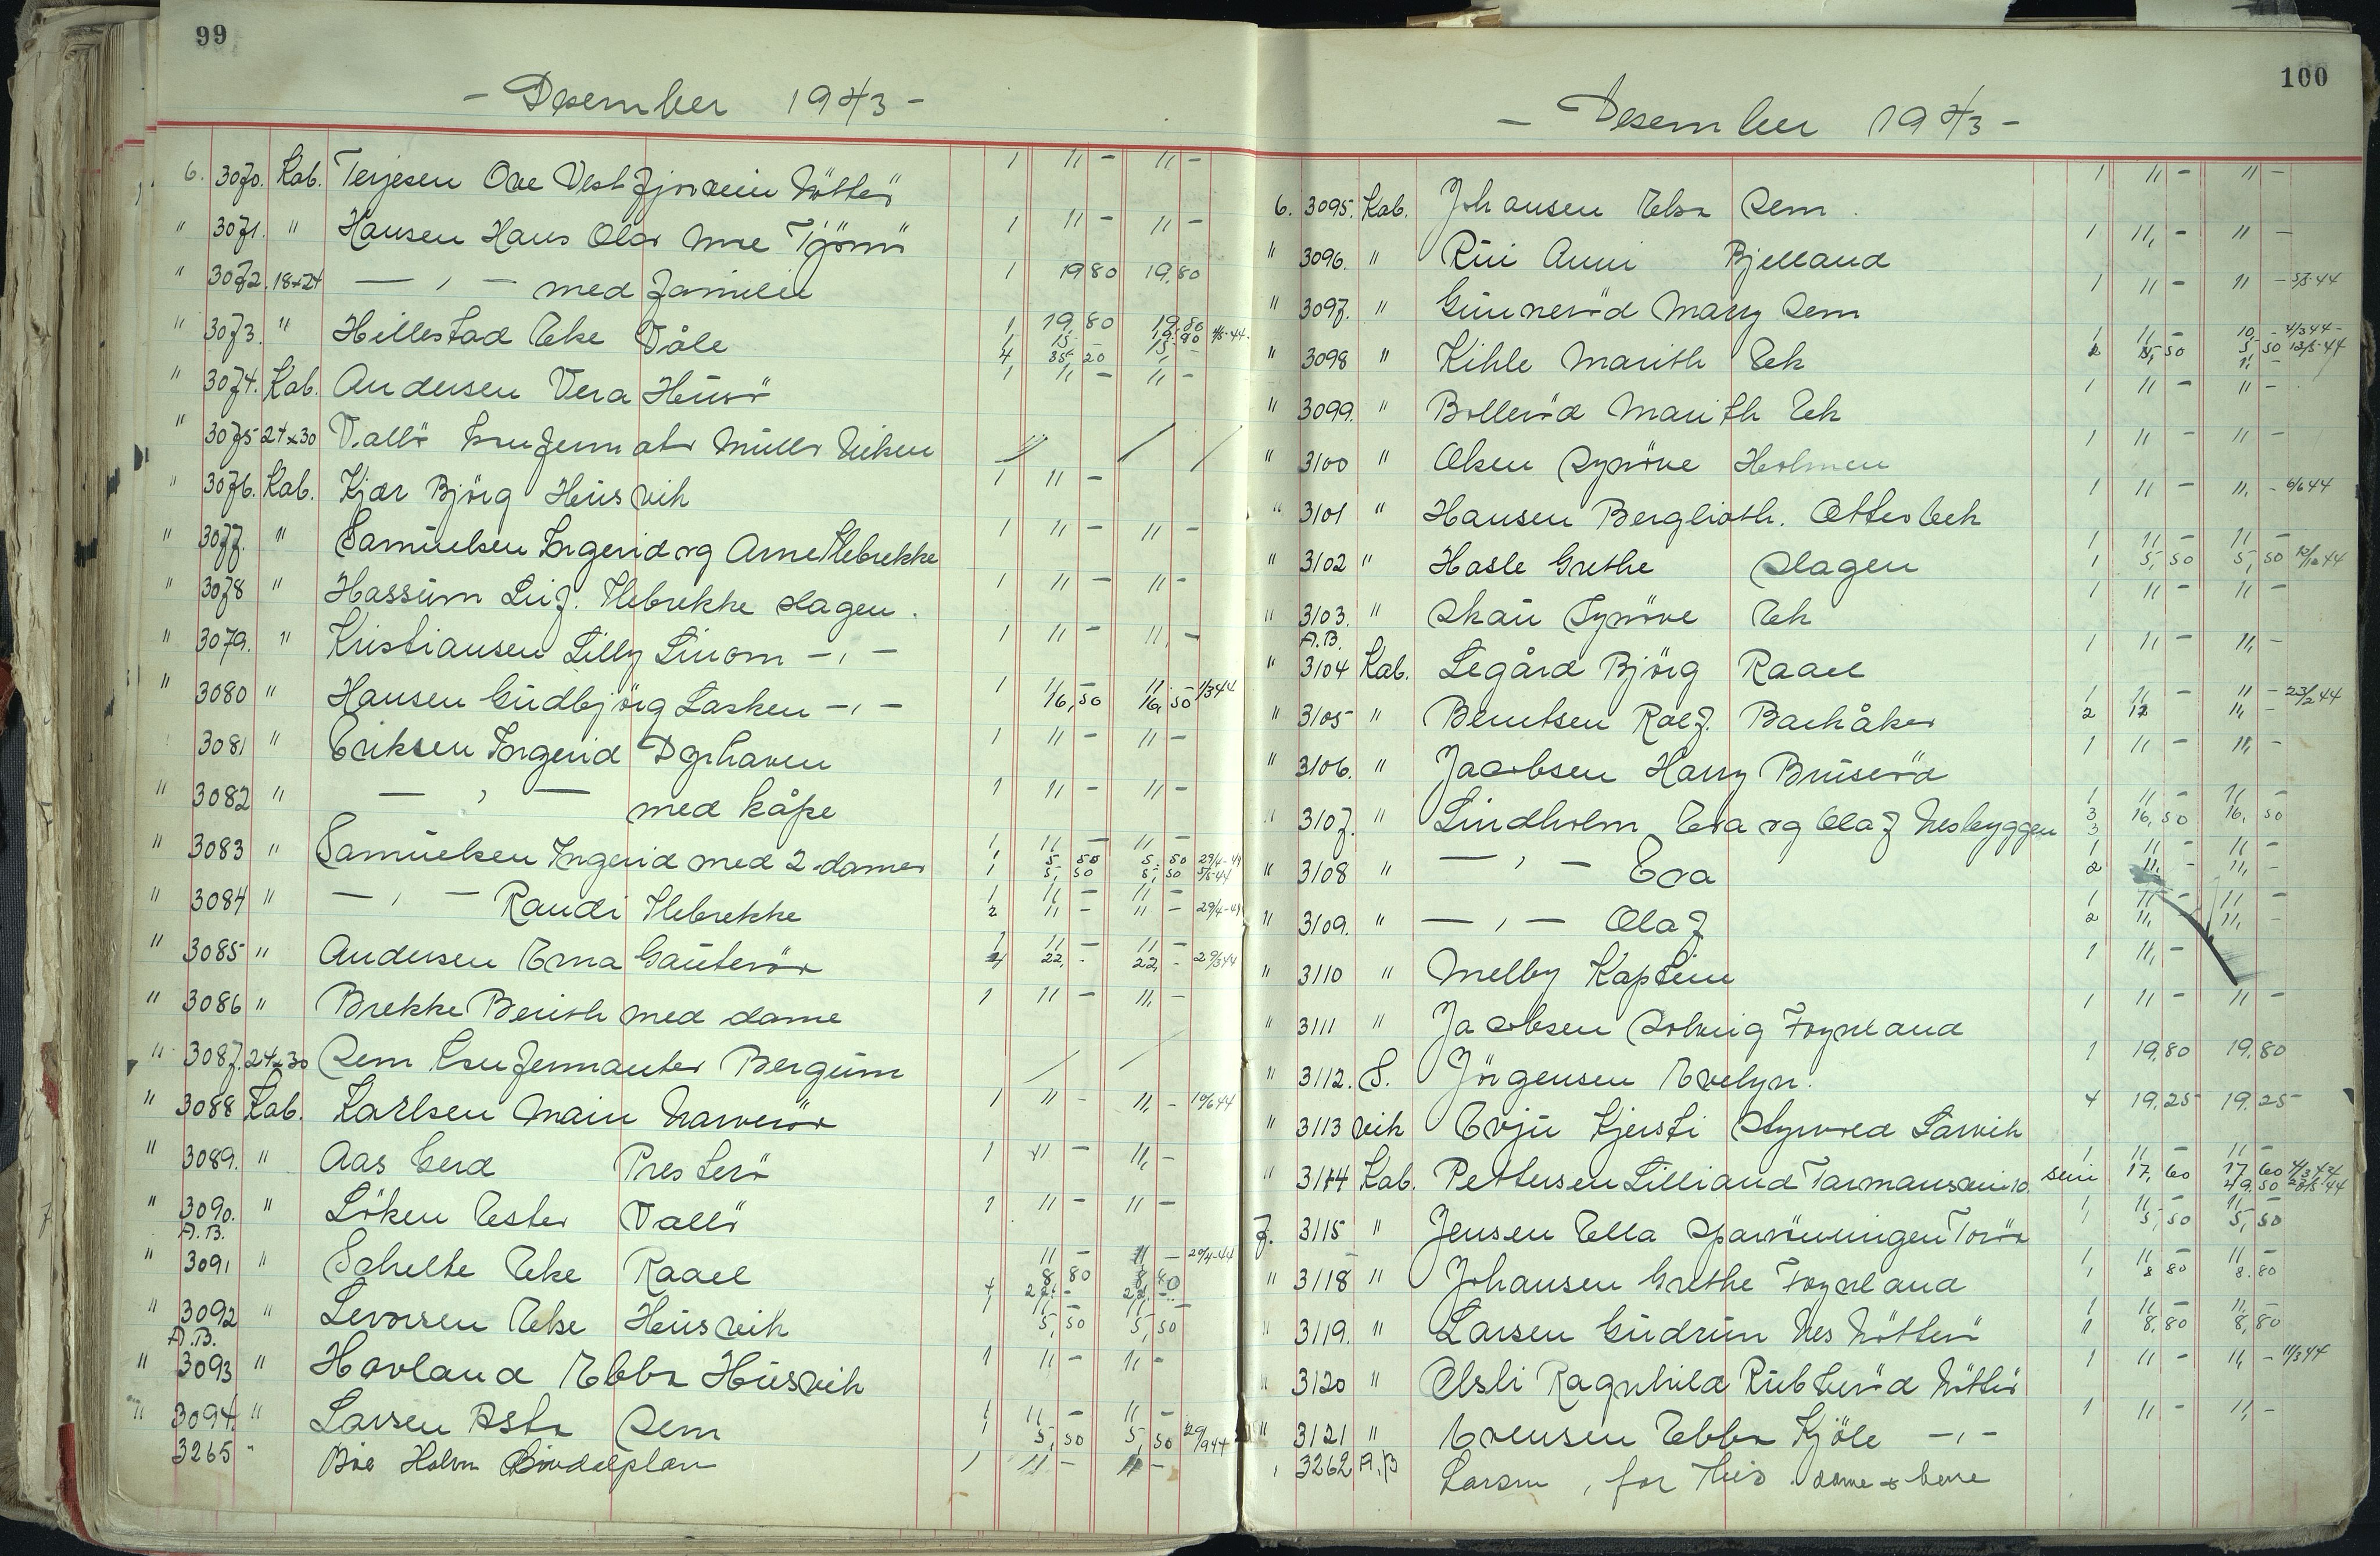 99
- Desember 1943 -
6. 3070. Kab. Terjesen Ove Vestfjordvein Nötterö 1 11 - 11 -
" 3071. " Hansen Hans Olav Mre Tjömö 1 11 - 11 -
" 3072. 18x24 - " - med familie 1 19 80 19,80
" 3073. " Hillestad Eke Våle 1 19,80 19.80
" 3074. Kab. Andersen Vera Husö 1 11 - 11 -
" 3075 24x30 Vallö Müller Viken
" 3076. Kab. Kjær Björg Husvik 1 11 -
" 3077. " Samuelsen Ingerid og Arne Ilebrekke 1 11 - 11 -
" 3078 " Hassum Leif. Ilebrekke Slagen. 1 11 - 11 -
" 3079. " Kristiansen Lilly Linom - " - 1 11 - 11, -
" 3080 " Hansen Gudbjörg Lasken - " - 1 11 - 11 - 1/3 44
16,50 16,50
3081 " Eriksen Ingerid Dyrhaven 1 11 - 11 -
" 3082 " - " - med kåpe 1 11 - 11 -
" 3083 " Samuelsen Ingerid med 2 damer 1 11 - 11 -
1 5 50 5,50 29/4-44
1 5,50 5,50 5/5-44
" 3084 " - " - Randi Ilebrekke 1 11 - 11 -
2 11 - 11 - 29/4-44
" 3085 " Andersen Erna Gauterör 1 11 - 11 -
4 22, - 22, - 29/3 44
" 3086 " Brekke Berith med dame 1 11 - 11, -
" 3087. 24x30 Sem Bergum
" 3088 Kab. Karlsen Main Narverör 1 11 - 11, - 10/6 44
" 3089. " Aas Gerd Presterö 1 11 - 11, -
" 3090. " Löken Ester Vallö 1 11 - 11 -
A.B.
" 3091 " Schelte Eke Raael 11 - 11 - 20/4-44
8 80 8,80
4 22, - 22, -
" 3092 " Levorsen Else Husvik 1 11 - 11 -
5,50 5,50
A.B.
" 3093 " Hovland Ebba Husvik 1 11 - 11 -
" 3094. " Larsen Asta Sem 1 11 - 11 -
1 5,50 5,50 29/9 44
3265 " Boe Holm 1 11 - 11 -
100
- Desember 1943 -
6. 3095. Kab. Johansen Elsa Sem. 1 11 - 11 -
" 3096. " Rui Anni Bjelland 1 11, - 11 -
" 3097. " Gunneröd Mary Sem 1 11 - 11 - 5/5 44
" 3098 " Kihle Marith Eek 1 11 - 10 - 4/3 44 -
5,50 5 50 13/5-44
" 3099. " Bolleröd Marith Eek 1 11 - 11 -
" 3100 " Olsen Synöve Holmen 1 11 - 11 -
" 3101 " Hansen Berglioth. Otterbek 1 11 - 11, - 6/6 44
" 3102 " Hasle Grethe Slagen 1 11 - 11 -
1 5,50 5,50 44
" 3103. " Skau Synöve Eek 1 11 - 11 -
A.B.
" 3104 Kab. Legård Björg Raael 1 11 - 11, -
" 3105 " Berntsen Rolf. Bachåker 1 11 - 11 - 23/2 44
2 11, -
" 3106. " Jacobsen Harry Bruseröd 1 11 - 11, -
" 3107. " Lindholm Eva og Olaf Nesbyggen 1 11 - 11 -
3 16,50 16,50
" 3108 " - " - Eva 1 11 - 11 -
2 11, - 11, -
" 3109. " - " - Olaf 1 11 - 11 -
2 11, 11, -
" 3110 " Melby Kaptein 1 11, -
" 3111 " Jacobsen Solveig Foynland 1 11 - 11 -
" 3112. S. Jörgensen Evelyn. 1 19,80 19,80
" 3113 vik Evju Kjersti Larvik 4 19,25 19,25
" 3114 Kab. Pettersen Lilli and 1 11 - 11 -
17,60 17,60
7. 3115 " Jensen Ella Torör 1 11, - 11, -
1 5,50 5,50
" 3118 " Johansen Grethe Foynland 1 11 - 11 -
8 80 8.80
" 3119. " Larsen Gudrun Nes Nötterö 1 11, - 11, -
8,80 8,80
" 3120 " Ragnhild Nötterö 1 11 - 11, - 11/3 44
" 3121 " Evensen Ebba Kjöle - " - 1 11 - 11, -
3262 A.B Larsen, for dame + herre